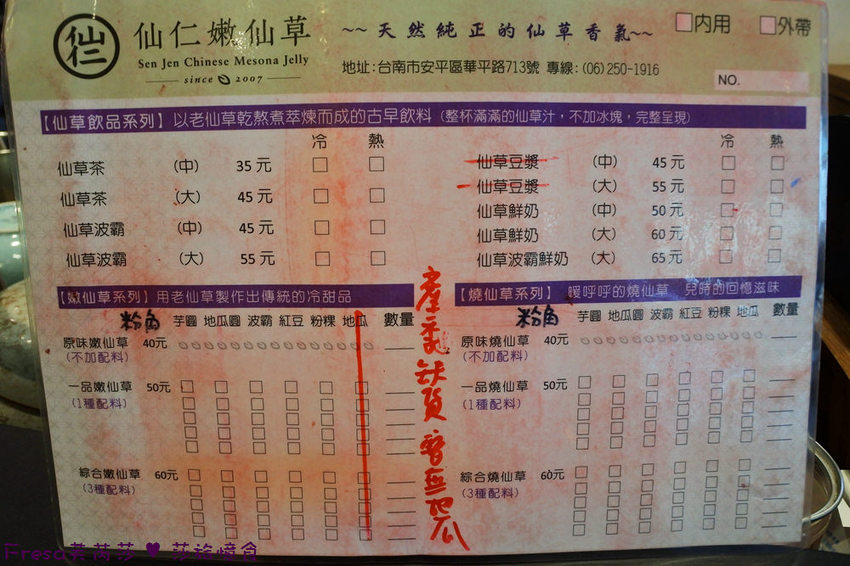 仙仁
仙仁嫩仙草
Sen Jen Chinese Mesona Jelly
since 2007
~~天然純正的仙草香氣~~
□內用 □外帶
地址:台南市安平區華平路713號 專線:(06)250-1916
NO.
【仙草飲品系列】以老仙草乾熬煮萃煉而成的古早飲料 (整杯滿滿的仙草汁，不加冰塊，完整呈現)
冷 熱 冷 熱
仙草茶 (中) 35元 □ □
仙草茶 (大) 45元 □ □
仙草波霸 (中) 45元 □ □
仙草波霸 (大) 55元 □ □
仙草豆漿 (中) 45元 □ □
仙草豆漿 (大) 55元 □ □
仙草鮮奶 (中) 50元 □ □
仙草鮮奶 (大) 60元 □ □
仙草波霸鮮奶 (大) 65元 □ □
【嫩仙草系列】用老仙草製作出傳統的冷甜品
粉角 芋圓 地瓜圓 波霸 紅豆 粉粿 地瓜 數量
原味嫩仙草 40元
(不加配料)
一品嫩仙草 50元
(1種配料)
綜合嫩仙草 60元
(3種配料)
產記缺貨 暫無地瓜
【燒仙草系列】 暖呼呼的燒仙草 兒時的回憶滋味
粉角 芋圓 地瓜圓 波霸 紅豆 粉粿 地瓜 數量
原味燒仙草 40元
(不加配料)
一品燒仙草 50元
(1種配料)
綜合燒仙草 60元
(3種配料)
Fresa芙芮莎 ♥ 莎旅憶食